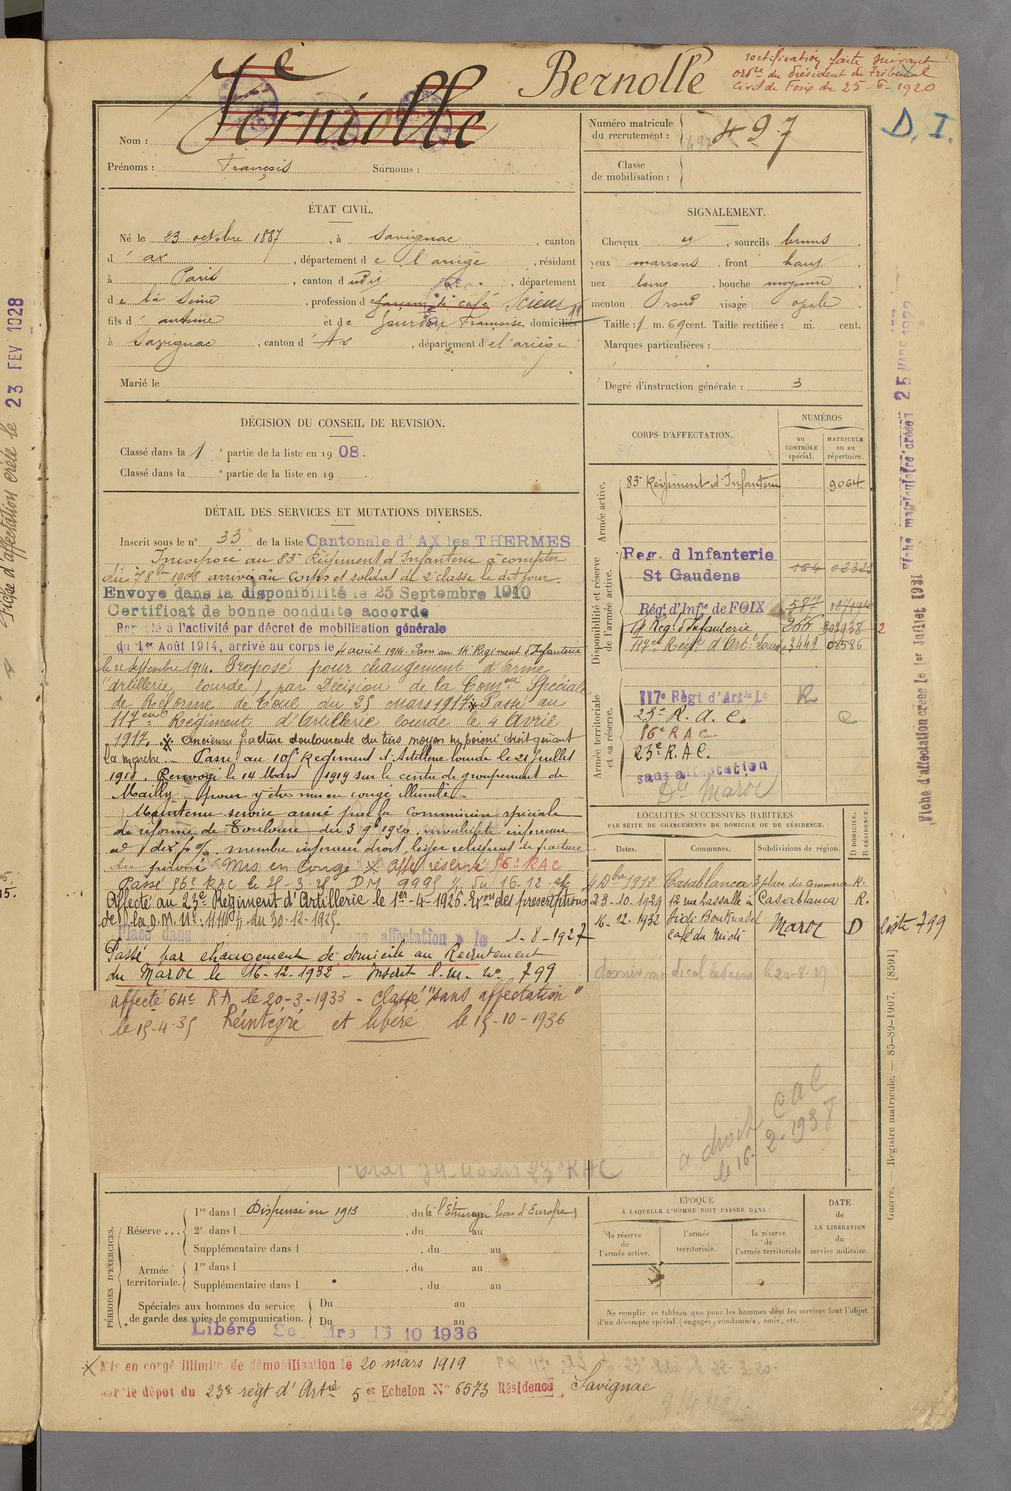 Bernolle
rectification faite suivant
ord^ce du Président du Tribunal
Civil de Foix du 25-6-1920
D. I.
Nom : Ferniolle
Prénoms : François Surnoms :
Numéro matricule
du recrutement : 497
Classe
de mobilisation :
ÉTAT CIVIL.
Né le 23 octobre 1887, à Savignac, canton
d'ax, département de l'ariège, résidant
à Paris, canton d udit, département
de la Seine, profession de garçon de café Scieur
fils d'antoine et de Françoise, domiciliés
à Savignac, canton d'Ax, département de l'ariège
Marié le
SIGNALEMENT.
Cheveux et, sourcils bruns
yeux marrons, front haut
nez long, bouche moyenne
menton rond visage ovale
Taille : 1 m. 69 cent. Taille rectifiée : m. cent.
Marques particulières :
Degré d'instruction générale : 3
DÉCISION DU CONSEIL DE REVISION.
Classé dans la 1^e partie de la liste en 1908.
Classé dans la ^e partie de la liste en 19
DÉTAIL DES SERVICES ET MUTATIONS DIVERSES.
Inscrit sous le n° 33 de la liste Cantonale d'AX les THERMES
Incorporé au 83^e Régiment d'Infanterie à compter
du 7 8bre 1908 arrivé au corps et soldat de 2^e classe le dit jour.
Envoyé dans la disponibilité le 25 Septembre 1910
Certificat de bonne conduite accordé
Rappelé à l'activité par décret de mobilisation générale
du 1er Août 1914, arrivé au corps le 4 août 1914. Passé au 14^e Régiment d'Infanterie
le 11 septembre 1914. Proposé pour changement d'arme
(artillerie lourde) par Décision de la Com^on Spéciale
de Réforme de Toul du 25 mars 1917 * Passé au
117^eme Régiment d'Artillerie lourde le 4 Avril
1917. * ancienne fracture douloureuse du tiers moyen du péroné droit gênant
la marche. - Passé au 105^e Régiment d'Artillerie lourde le 21 juillet
1918. Renvoyé le 14 Mars 1919 sur le centre de groupement de
Mailly pour y être mis en congé illimité
Maintenu service armé par la Commission spéciale
de réforme de Toulouse du 3 9^e 1920. invalidité inférieure
à dix p%. membre inférieur droit, léger reliquat de fracture
du péroné Mis en Congé X aff^té réserve 56^e RAC
Affecté au 23^e Régiment d'Artillerie le 1^er-4-1926. Ex^on des prescriptions
de la D.M. N° 11110 du 30-12-1925.
sans affectation le 1-8-1927
Passé par changement de domicile au Recrutement
du Maroc le 16-12-1932 - Inscrit l. m. n° 799
affecté 64^e RA le 20-3-1933 - Classé "sans affectation"
le 15-4-35 Réintégré et libéré le 15-10-1936
CORPS D'AFFECTATION.
NUMÉROS
au
CONTRÔLE
spécial.
MATRICULE
ou au
répertoire.
Armée active.
83^e Régiment d'Infanterie 9064
Disponibilité et réserve
de l'armée active.
Reg. d Infanterie
St Gaudens
Rég^t d'Inf^ie de FOIX 587
14 Reg. d'Infanterie
117^eme Rég^t d'Art^ie Lourde
Armée territoriale
et sa réserve.
117^e Règt d'Art^ie L^de
23^e R. a. C.
56^e RAC
23^e R.A.C.
sans affectation
Maroc
LOCALITÉS SUCCESSIVES HABITÉES
PAR SUITE DE CHANGEMENTS DE DOMICILE OU DE RÉSIDENCE.
Dates. Communes. Subdivisions de région. D DOMICILE. R RÉSIDENCE.
Xbre 1912 Casablanca 3 place du commerce R.
23.10.1929 12 rue Lassalle à Casablanca R.
16.12.1932 Sidi Bouknadel Maroc D
café du midi
liste 799
a droit CAC
le 16-2-1938
PÉRIODES D'EXERCICES.
Réserve . . . 1^re dans l Dispensé en 1913, du à l'Etranger hors d'Europe
2^e dans l , du au
Supplémentaire dans l , du au
Armée
territoriale. 1^re dans l , du au
Supplémentaire dans l , du au
Spéciales aux hommes du service
de garde des voies de communication. Du au
Du au
Libéré 15 10 1936
ÉPOQUE
À LAQUELLE L'HOMME DOIT PASSER DANS :
la réserve
de
l'armée active.
l'armée
territoriale.
la réserve
de
l'armée territoriale
DATE
de
LA LIBÉRATION
du
service militaire.
Ne remplir ce tableau que pour les hommes dont les services font l'objet
d'un décompte spécial (engagés, condamnés, omis, etc.).
X Mis en congé illimité de démobilisation le 20 mars 1919
par le dépôt du 23^e rég^t d'Art^ie 5^er Echelon N° 6573 Résidence Savignac
Fiche d'affectation créée le 23 FEV 1928
Fiche matriculaire créée 25 MARS
Fiche d'affectation créée le 1er Juillet 1931
Guerre. — Registre matricule. — 85-89-1907. [8591]